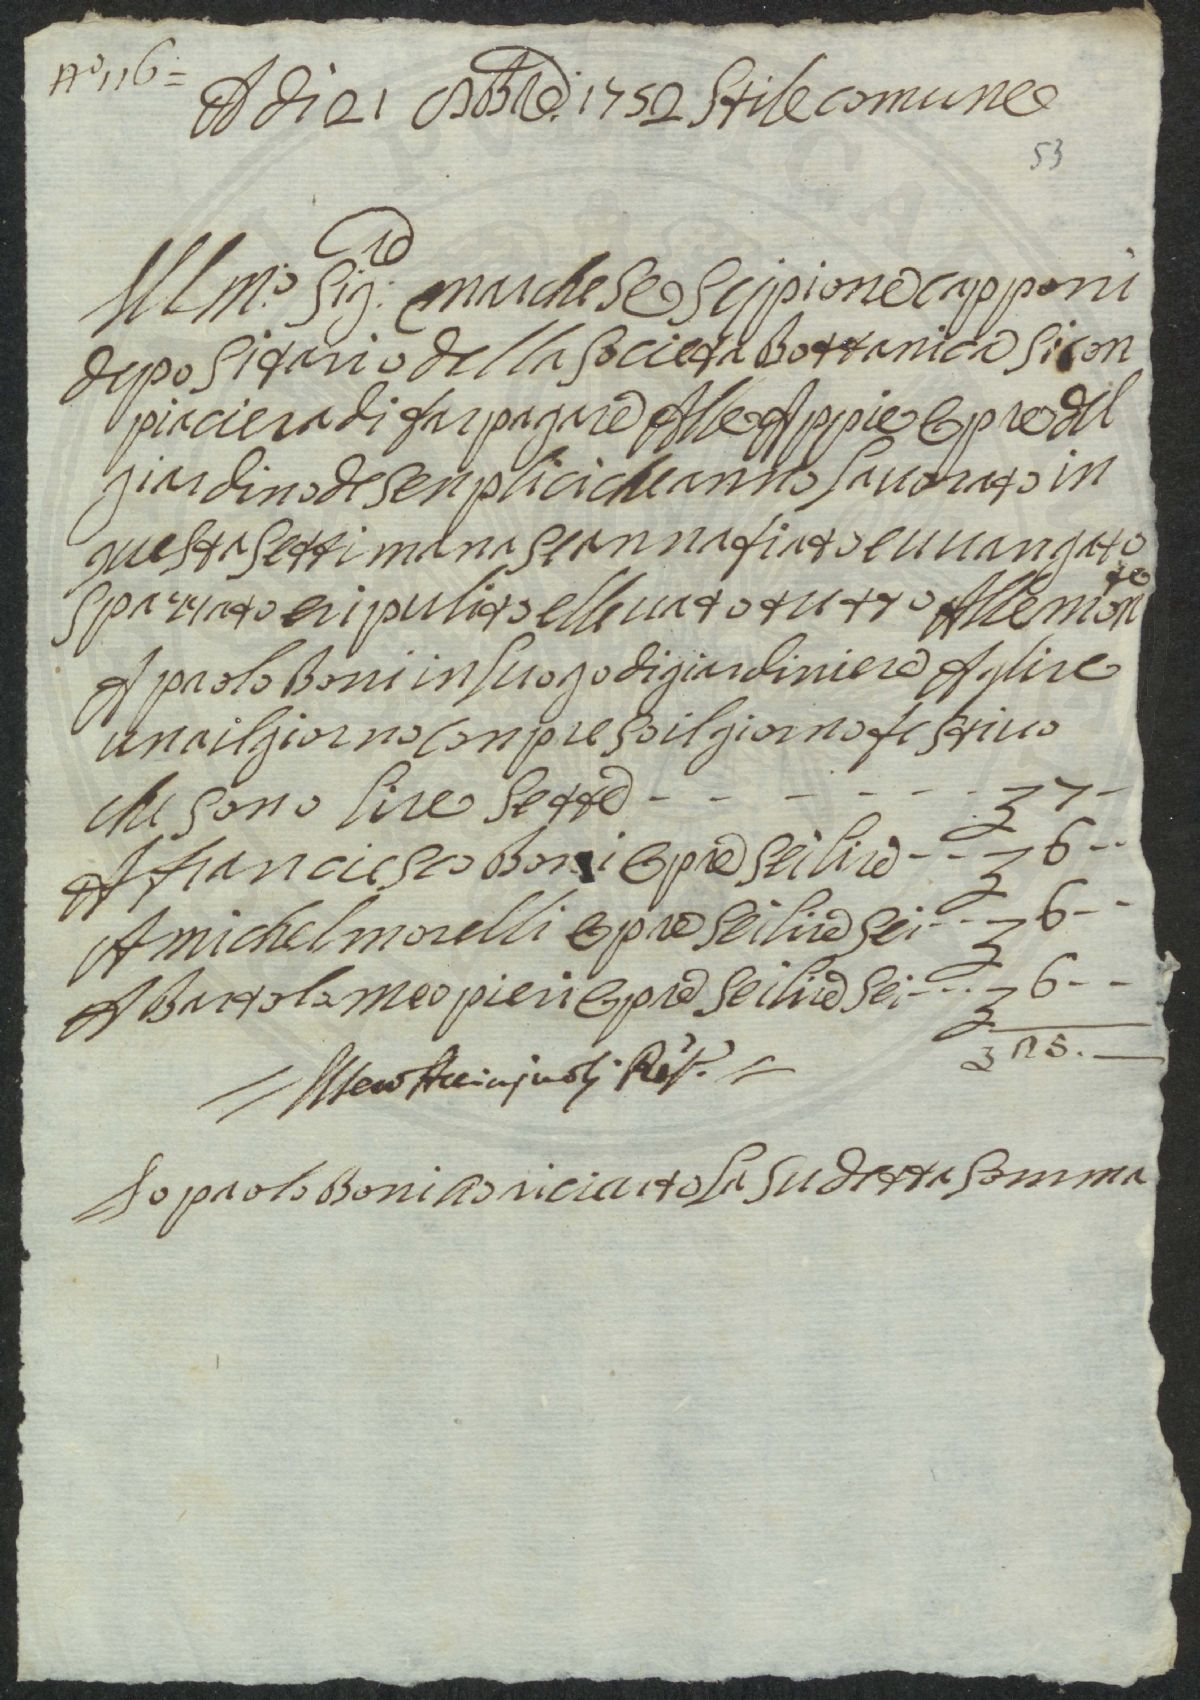 N° 116=
A di 21 8bre: 1752 Stile comune
53
Ill.mo Sig.re marchese Scippione capponi
depositario della Societa Bottanica si con
piaciera di far pagare Alle Appie Opre del
giardino de senplici che anno lavorato in
questa settimana se annafiato e vvangato
spazzato e ripulito e lleuato tutto Alle mon
te
A paolo Boni in luogo di giardiniere A lire
una il giorno conpreso il giorno festivo
che sono lire sette - - - - - - - 7 -
A francicsco Boni Opre sei lire - - - 6 - -
A michel morelli Opre sei lire sei - - - 6 - -
A Bartolomeo pieri Opre sei lire sei - - - 6 - -
25. -
= Acciajuoli =
Io paolo Boni o riceuto la sudetta somma